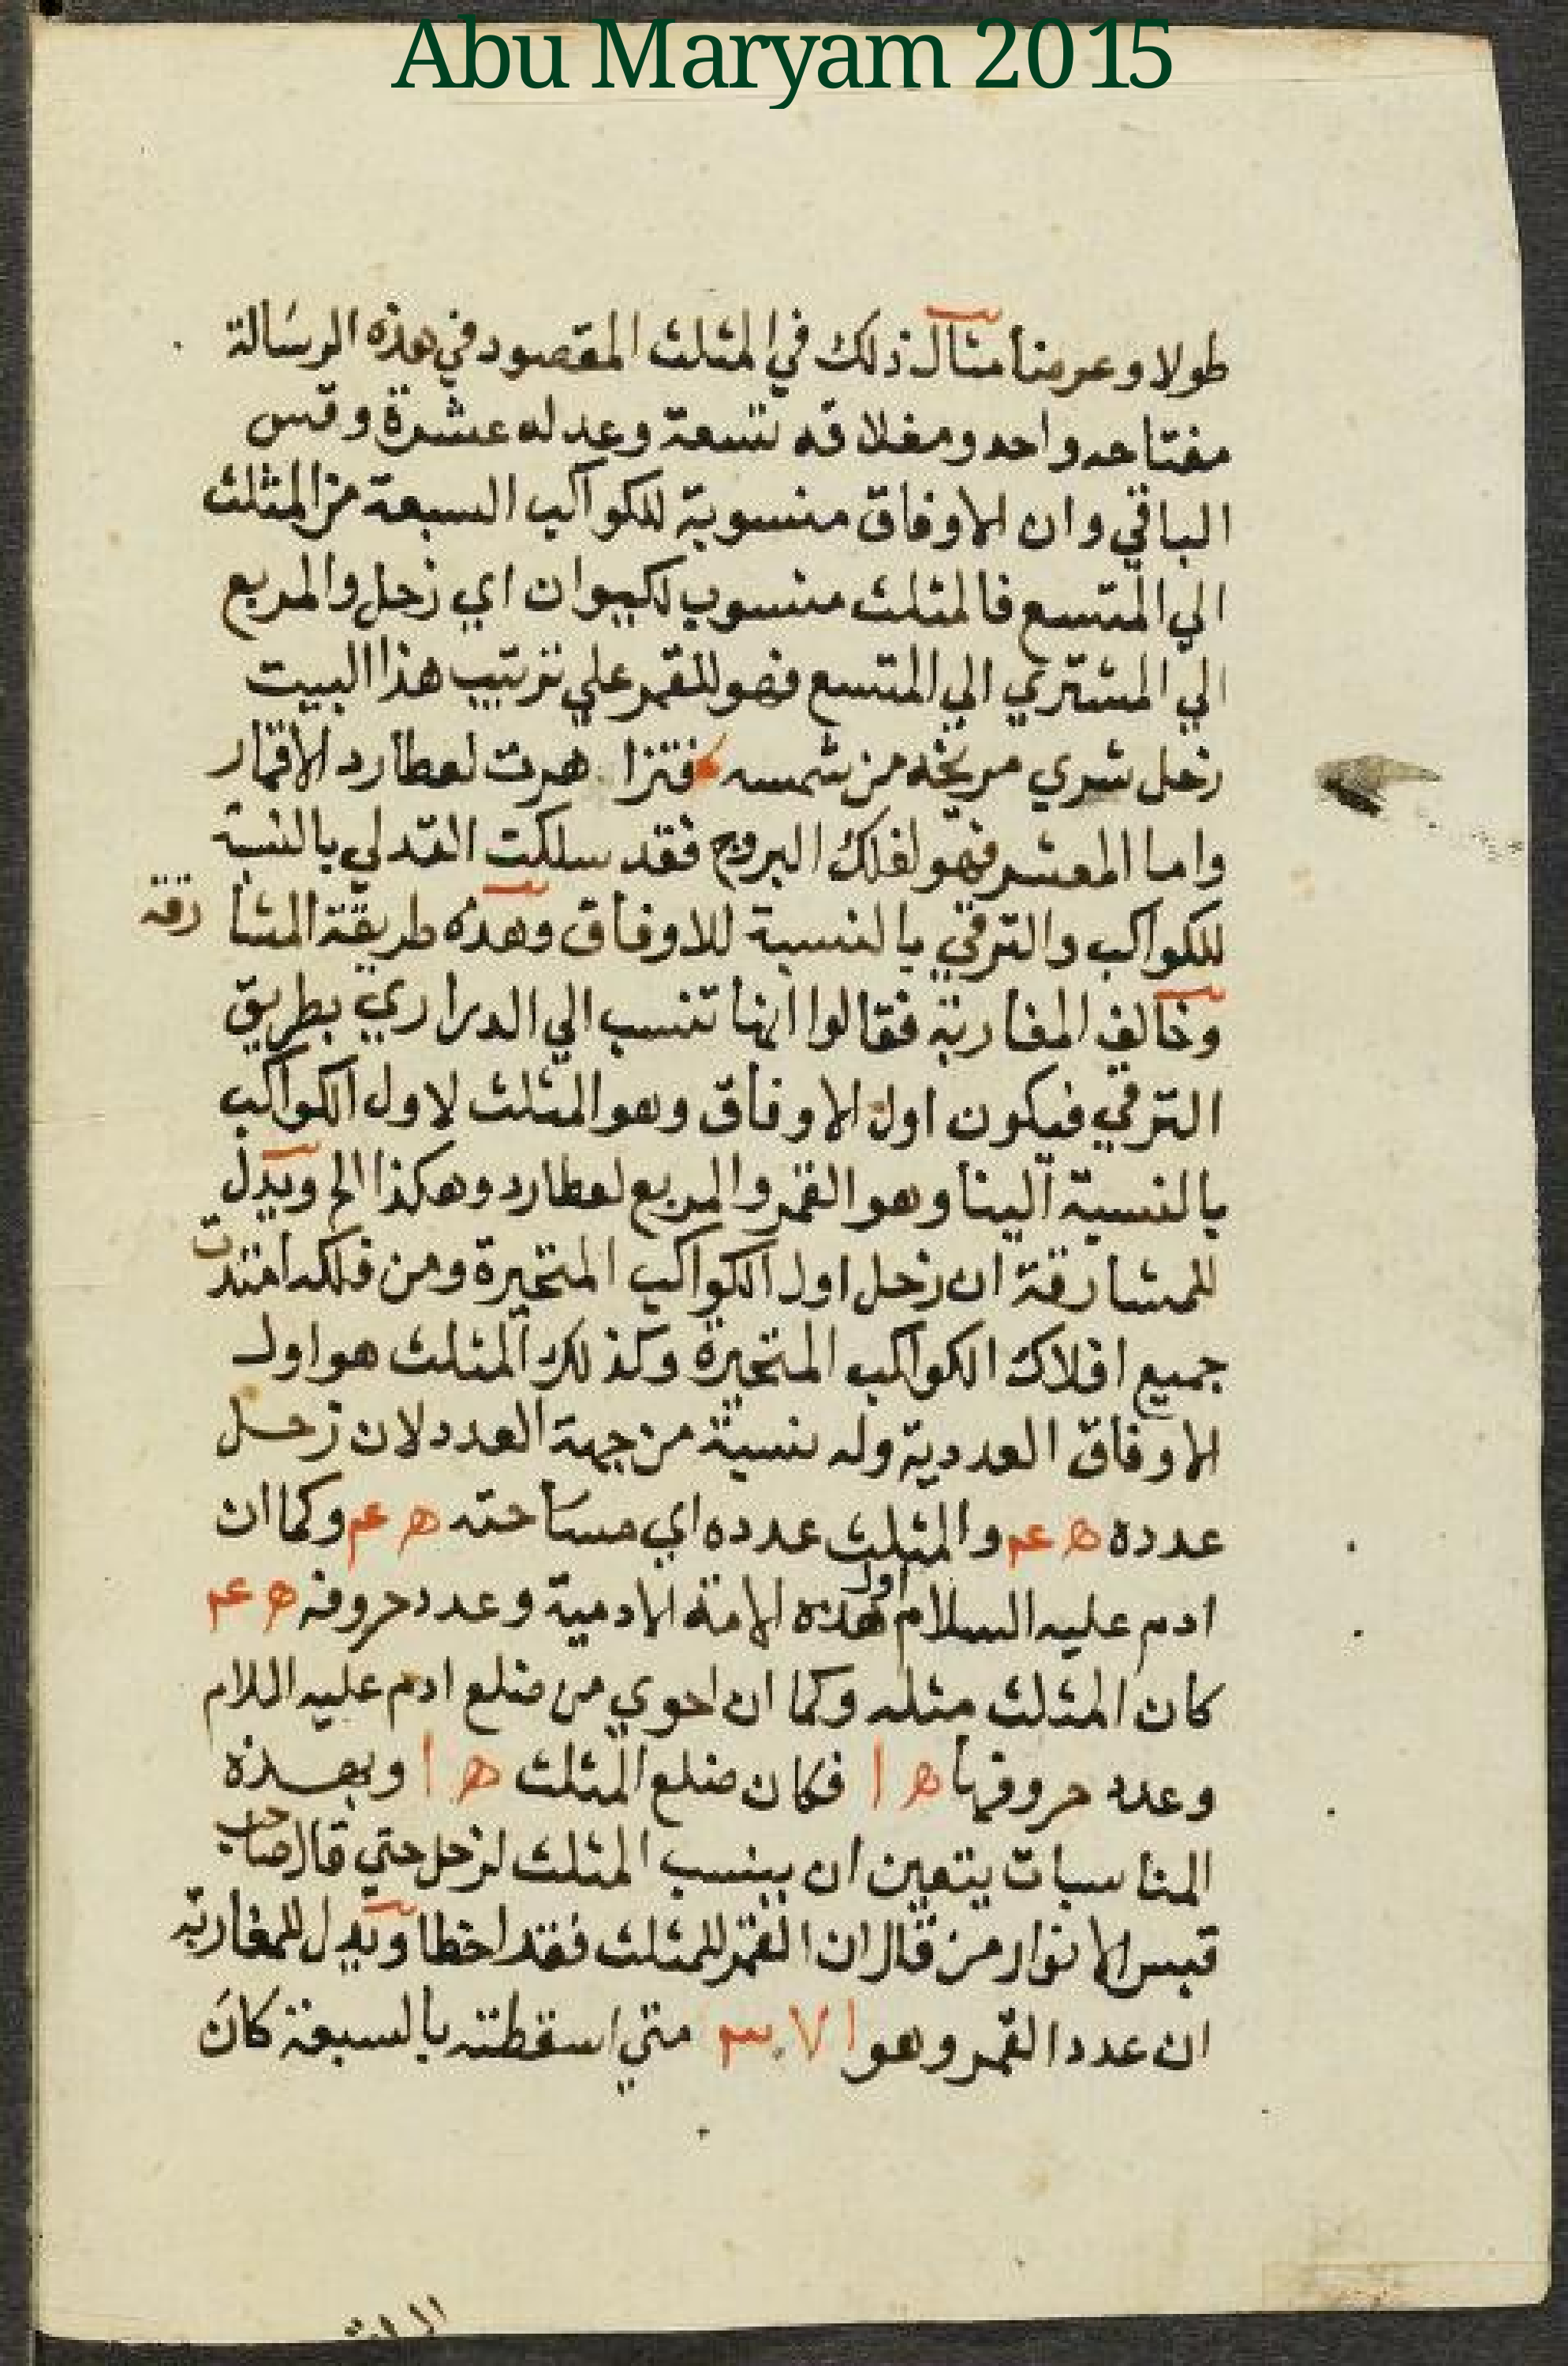 Abu Maryam 2015
طولا وعرضا مثال ذلك في المثلث المقصود في هذه الرسالة
مفتاحه واحد ومغلاقه تسعة وعدله عشرة وقس
الباقي وان الاوفاق منسوبة للكواكب السبعة من المثلث
الي المتسع فالمثلث منسوب لكيوان اي زحل والمربع
الي المشتري الي المتسع فهو للقمر علي ترتيب هذا البيت
زحل شري مريخه من شمسه فتزاهرت لعطارد الاقمار
واما المعشر فهو لفلك البروج فقد سلكت التدلي بالنسبة
للكواكب والترقي بالنسبة للاوفاق وهذه طريقة المشارقة
وخالف المغاربة فقالوا انها تنسب الي الدراري بطريق
الترقي فيكون اول الاوفاق وهو المثلث لاول الكواكب
بالنسبة الينا وهو القمر والمربع لعطارد وهكذا الخ ويدل
للمشارقة ان زحل اول الكواكب المتحيرة ومن فلكه امتدت
جميع افلاك الكواكب المتحيرة وكذلك المثلث هو اول
الاوفاق العددية وله نسبة من جهة العدد لان زحل
عدده والمثلث عدده اي مساحته وكما ان
ادم عليه السلام اول هذه الامة الادمية وعدد حروفه
كان المثلث مثله وكما ان احوي من ضلع ادم عليه اللام
وعدد حروفها ه ا فكان ضلع المثلث ه ا وبهذه
المناسبات يتعين ان ينسب المثلث لزحل حتي قال صاحب
قبس الانوار من قال ان القمر للمثلث فقد اخطا ويدل للمغاربة
ان عدد القمر وهو متي اسقطته بالسبعة كان